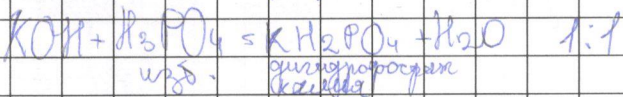 KOH + H₃PO₄ = KH₂PO₄ + H₂O 1:1
изб. дигидрофосфат
калия